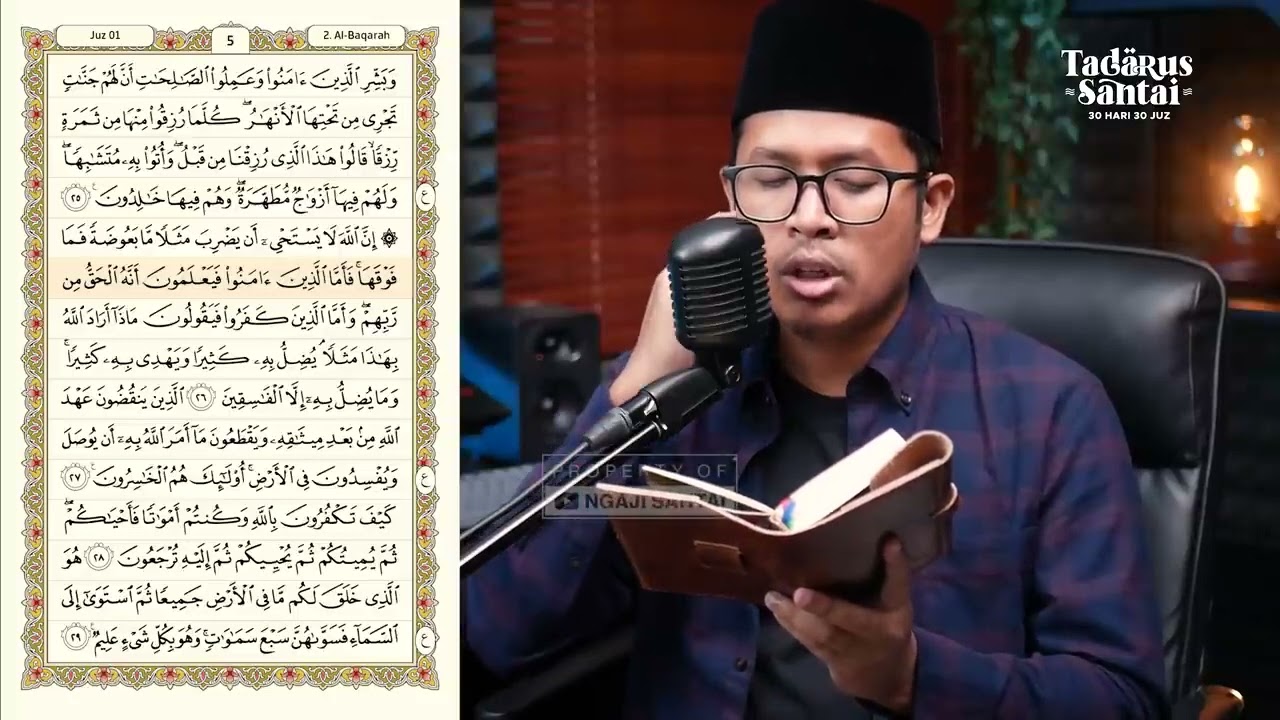 Juz 01
5
2. Al-Baqarah
وَبَشِّرِ ٱلَّذِينَ ءَامَنُوا۟ وَعَمِلُوا۟ ٱلصَّـٰلِحَـٰتِ أَنَّ لَهُمْ جَنَّـٰتٍ
تَجْرِى مِن تَحْتِهَا ٱلْأَنْهَـٰرُ ۖ كُلَّمَا رُزِقُوا۟ مِنْهَا مِن ثَمَرَةٍ
رِّزْقًا ۙ قَالُوا۟ هَـٰذَا ٱلَّذِى رُزِقْنَا مِن قَبْلُ ۖ وَأُتُوا۟ بِهِۦ مُتَشَـٰبِهًا ۖ
وَلَهُمْ فِيهَآ أَزْوَٰجٌ مُّطَهَّرَةٌ ۖ وَهُمْ فِيهَا خَـٰلِدُونَ ٢٥
ع
۞ إِنَّ ٱللَّهَ لَا يَسْتَحْىِۦٓ أَن يَضْرِبَ مَثَلًا مَّا بَعُوضَةً فَمَا
فَوْقَهَا ۚ فَأَمَّا ٱلَّذِينَ ءَامَنُوا۟ فَيَعْلَمُونَ أَنَّهُ ٱلْحَقُّ مِن
رَّبِّهِمْ ۖ وَأَمَّا ٱلَّذِينَ كَفَرُوا۟ فَيَقُولُونَ مَاذَآ أَرَادَ ٱللَّهُ
بِهَـٰذَا مَثَلًا ۘ يُضِلُّ بِهِۦ كَثِيرًا وَيَهْدِى بِهِۦ كَثِيرًا ۚ
وَمَا يُضِلُّ بِهِۦٓ إِلَّا ٱلْفَـٰسِقِينَ ٢٦ ٱلَّذِينَ يَنقُضُونَ عَهْدَ
ٱللَّهِ مِنۢ بَعْدِ مِيثَـٰقِهِۦ وَيَقْطَعُونَ مَآ أَمَرَ ٱللَّهُ بِهِۦٓ أَن يُوصَلَ
وَيُفْسِدُونَ فِى ٱلْأَرْضِ ۚ أُو۟لَـٰٓئِكَ هُمُ ٱلْخَـٰسِرُونَ ٢٧
ع
كَيْفَ تَكْفُرُونَ بِٱللَّهِ وَكُنتُمْ أَمْوَٰتًا فَأَحْيَـٰكُمْ ۖ
ثُمَّ يُمِيتُكُمْ ثُمَّ يُحْيِيكُمْ ثُمَّ إِلَيْهِ تُرْجَعُونَ ٢٨ هُوَ
ٱلَّذِى خَلَقَ لَكُم مَّا فِى ٱلْأَرْضِ جَمِيعًا ثُمَّ ٱسْتَوَىٰٓ إِلَى
ٱلسَّمَآءِ فَسَوَّىٰهُنَّ سَبْعَ سَمَـٰوَٰتٍ ۚ وَهُوَ بِكُلِّ شَىْءٍ عَلِيمٌ ٢٩
ع
Tadarus
Santai
30 HARI 30 JUZ
PROPERTY OF
NGAJI SANTAI